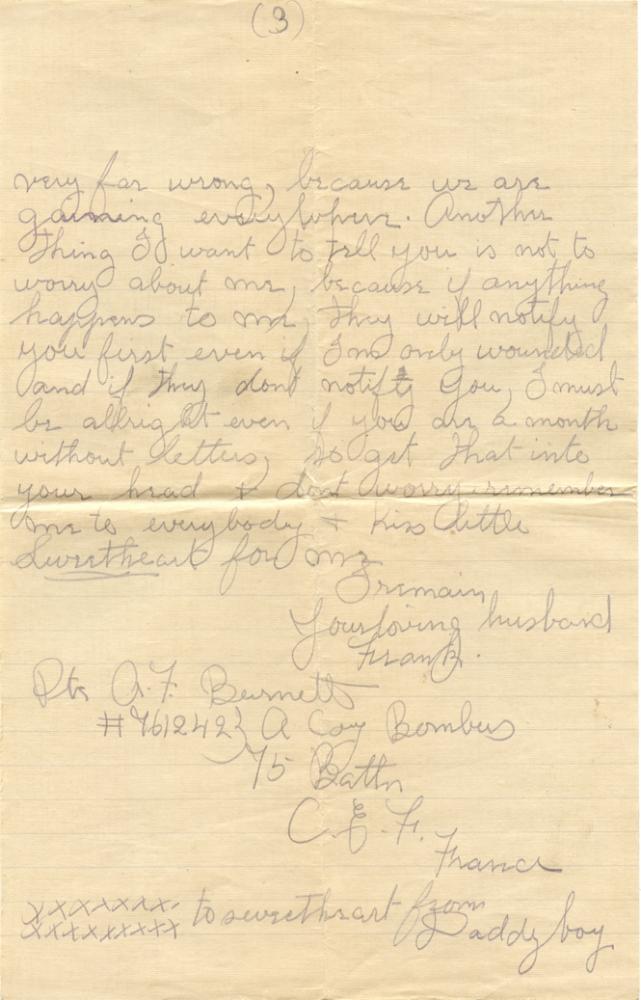 (3)
very far wrong, because we are
gaining everywhere. Another
thing I want to tell you is not to
worry about me, because if anything
happens to me, they will notify
you first even if I'm only wounded
and if they dont notify you, I must
be allright even if you are a month
without letters, so get that into
your head + dont worry remember
me to everybody + kiss little
Sweetheart for me
I remain
Your loving husband
Frank.
Pte A. F. Burnett
#761242} A Coy Bombers
75 Battn
C. E. F.
France
xxxxxxxx.
xxxxxxxxx to sweetheart from
Daddy boy